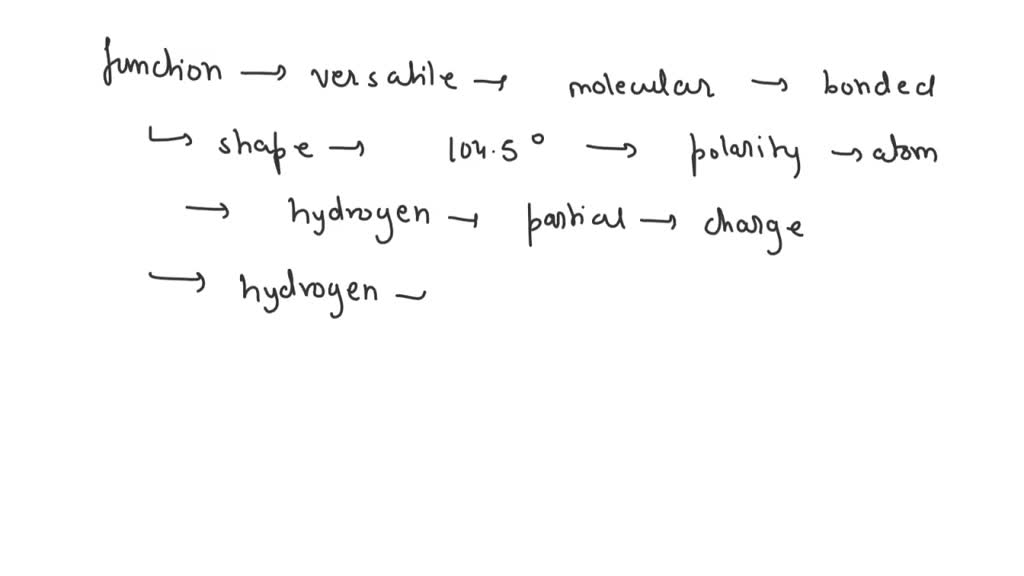 function → versatile → molecular → bonded
↳ shape → 104.5° → polarity → atom
→ hydrogen → partial → charge
→ hydrogen -